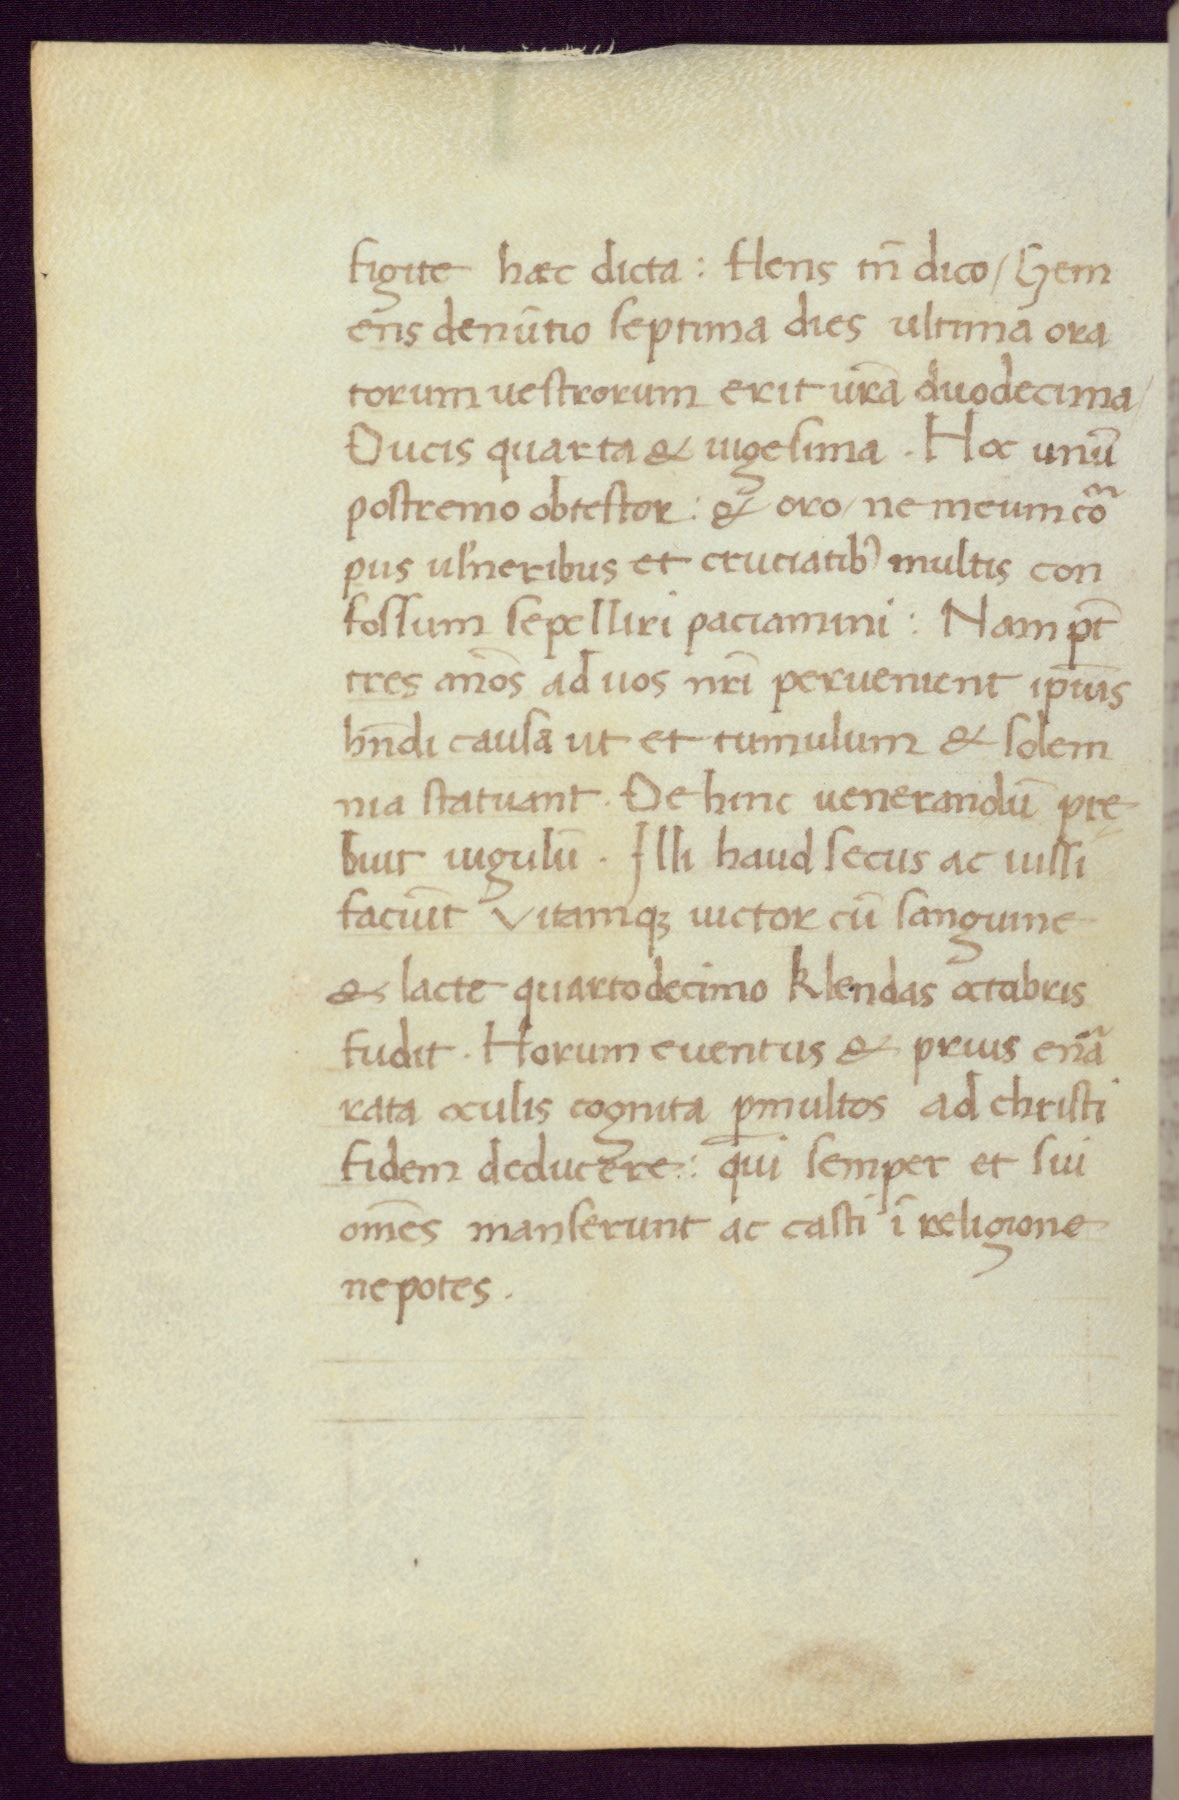 figite hæc dicta : flens tn̄ dico / Gem
ens denūtio septima dies ultima ora
torum vestrorum erit ur̄a duodecima /
Ducis quarta & uigesima . Hoc unū
postremo obtestor : & oro / ne meum co
pus uľneribus et cruciatib⁹ multis con
fossum sepelliri paciamini : Nam pt̄
tres an̄os ad uos nr̄i pervenient ip̄ius
hn̄di causa ut et tumulum & solem
nia statuant . De hinc uenerandū pre
buit iugulū . Illi haud secus ac iussi
faciūt Vitamqꝫ uictor cū sanguine
& lacte quartodecimo klendas octobris
fudit . Horum eventus & prius ena
rata oculis cognita ꝑmultos ad christi
fidem deducere : qui semper et sui
om̄es manserunt ac casti ī religione
nepotes .